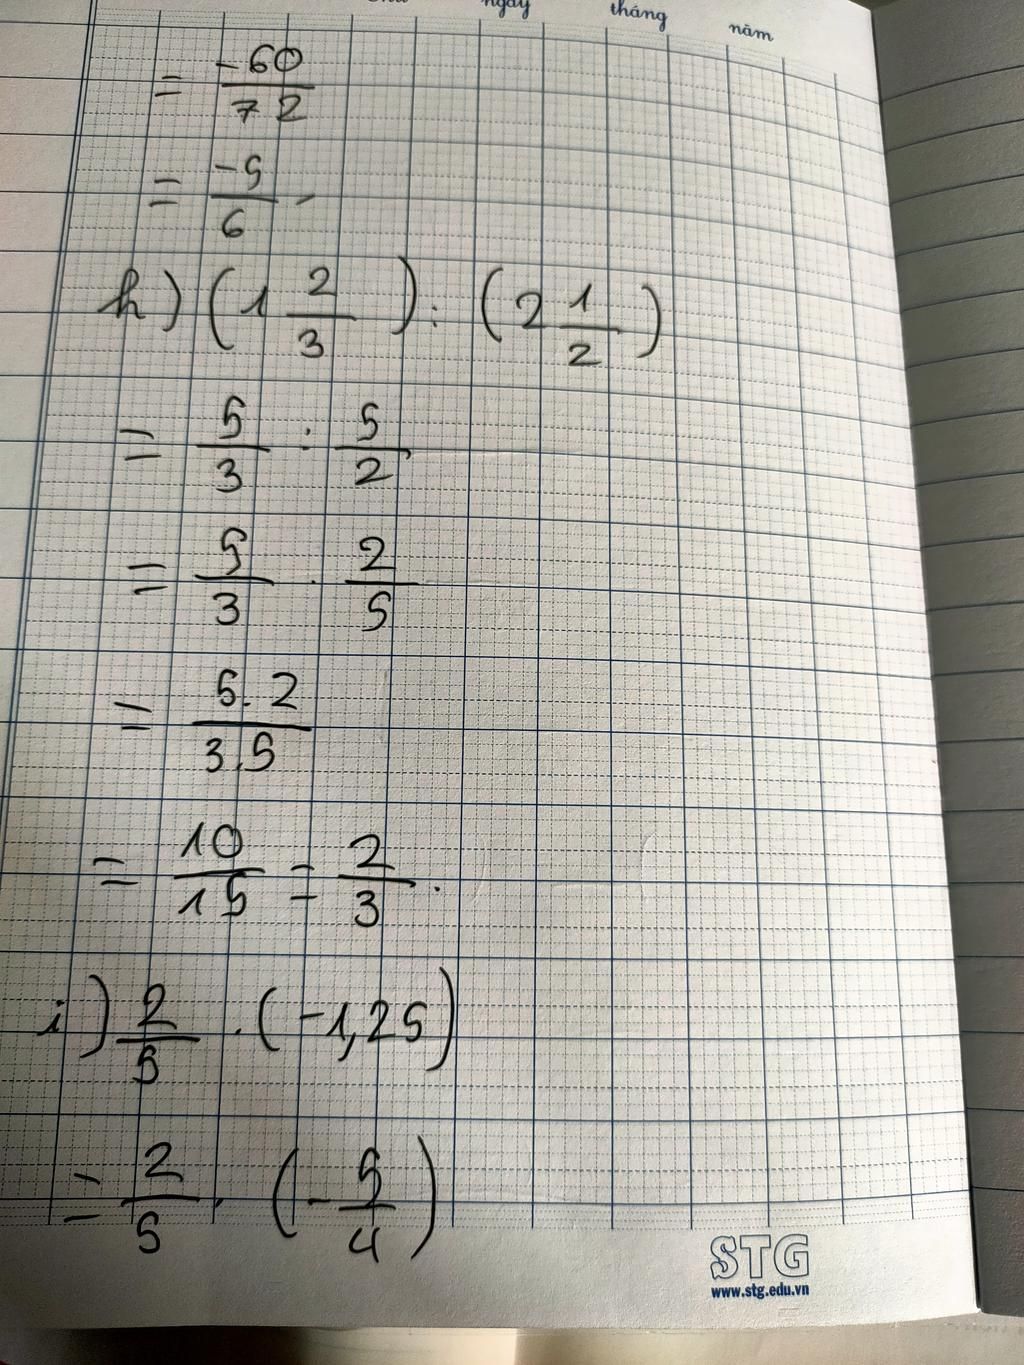 ngày tháng năm
= -60/72
= -5/6
h) (1 2/3) : (2 1/2)
= 5/3 : 5/2
= 5/3 . 2/5
= 5.2/3.5
= 10/15 = 2/3.
i) 2/5 . (-1,25)
= 2/5 . (-5/4)
STG
www.stg.edu.vn